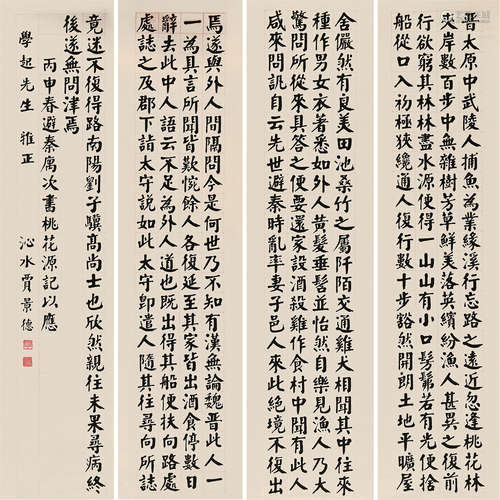 晉太原中武陵人捕魚為業緣溪行忘路之遠近忽逢桃花林
夾岸數百步中無雜樹芳草鮮美落英繽紛漁人甚異之復前
行欲窮其林林盡水源便得一山山有小口髣髴若有光便捨
船從口入初極狹纔通人復行數十步豁然開朗土地平曠屋
舍儼然有良美田池桑竹之屬阡陌交通雞犬相聞其中往來
種作男女衣著悉如外人黃髮垂髫並怡然自樂見漁人乃大
驚問所從來具答之便要還家設酒殺雞作食村中聞有此人
咸來問訊自云先世避秦時亂率妻子邑人來此絕境不復出
焉遂與外人間隔問今是何世乃不知有漢無論魏晉此人一
一為具言所聞皆歎惋餘人各復延至其家皆出酒食停數日
辭去此中人語云不足為外人道也既出得其船便扶向路處
處誌之及郡下詣太守說如此太守即遣人隨其往尋向所誌
竟迷不復得路南陽劉子驥高尚士也欣然親往未果尋病終
後遂無問津焉
丙申春避秦寓次書桃花源記以應
學起先生 雅正
沁水賈景德